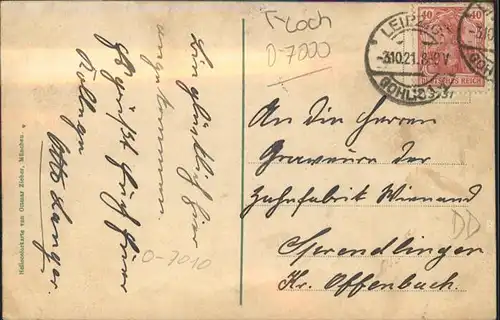 T-Loch
D-7000
LEIPZIG
-3.10.21.8-9V
GOHLIS
40 40
DEUTSCHES REICH
An die Herren
Graveure der
Zahnfabrik Wienand
Sprendlingen
Kr. Offenbach
DD
Bin glücklich hier
angekommen.
Es grüßt Euch Euer
Kollege
Otto Langer.
D-7010
Heliocolorkarte von Ottmar Zieher, München.